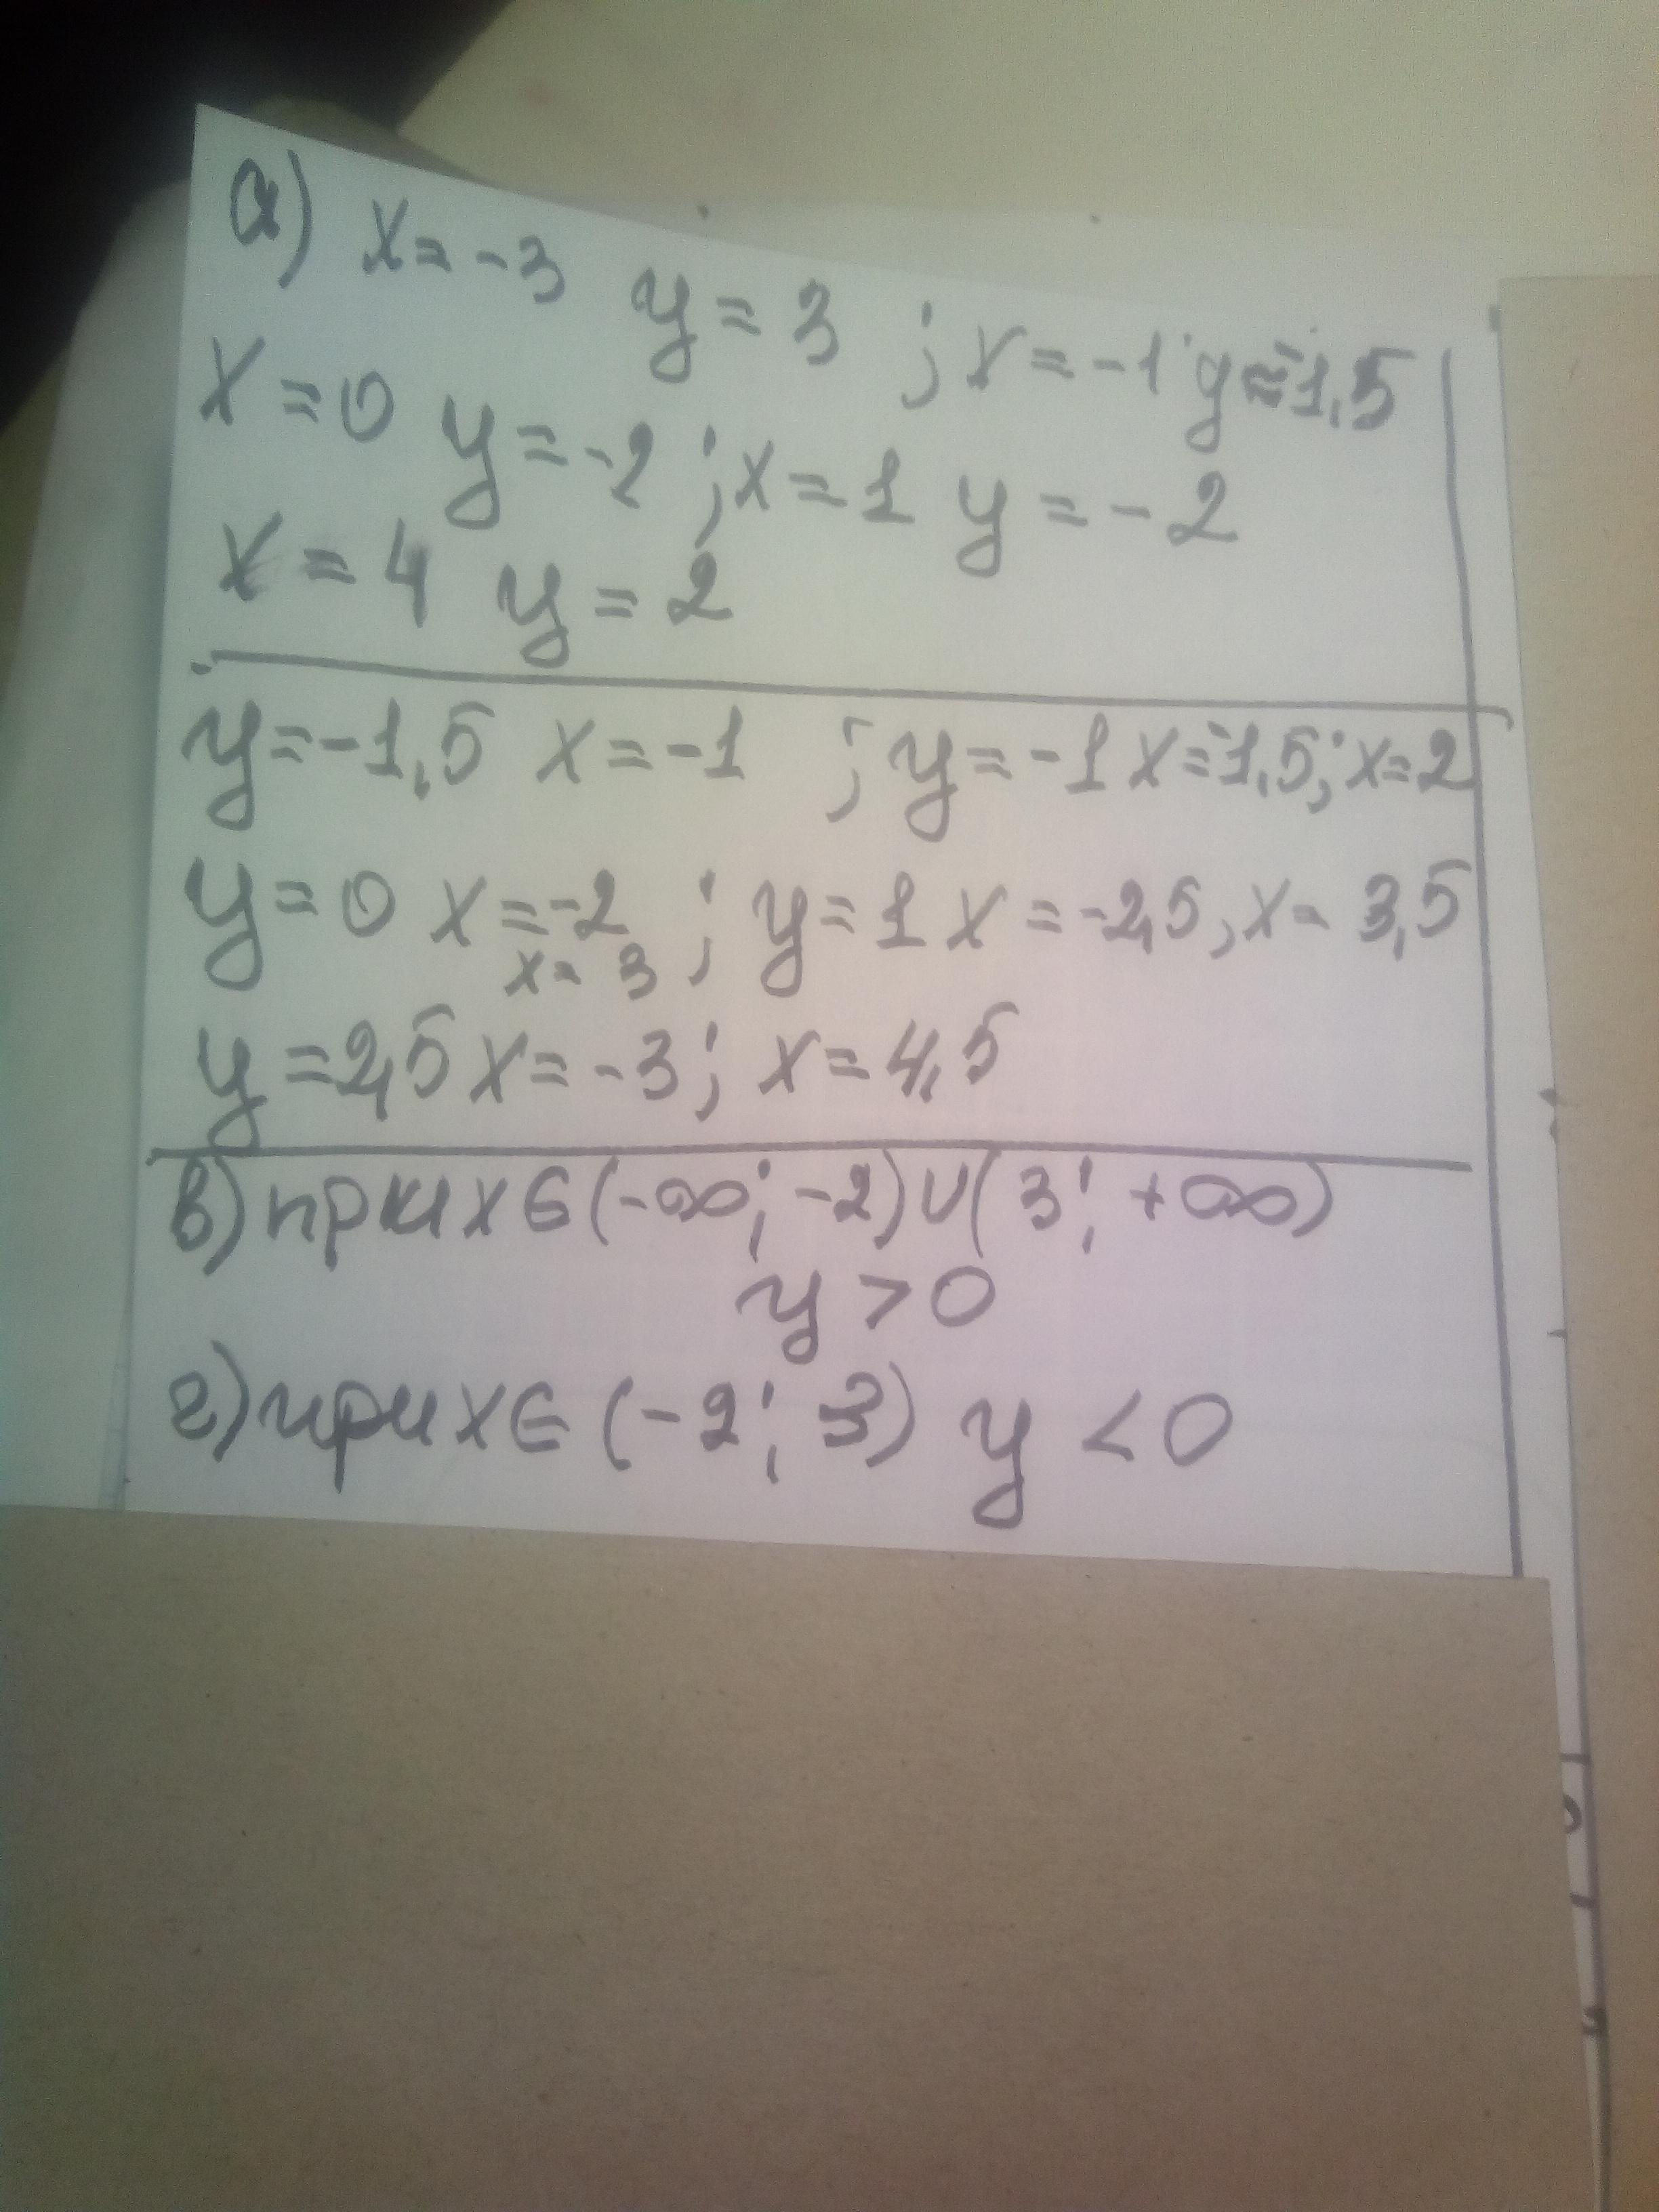 а) x = -3 y = 3 ; x = -1 y = -1,5
x = 0 y = -2 ; x = 1 y = -2
x = 4 y = 2
y = -1,5 x = -1 ; y = -1 x = -1,5; x = 2
y = 0 x = -2 ; y = 1 x = -2,5, x = 3,5
x = 3
y = 2,5 x = -3; x = 4,5
в) при x ∈ (-∞; -2) ∪ (3; +∞)
y > 0
г) при x ∈ (-2; 3) y < 0